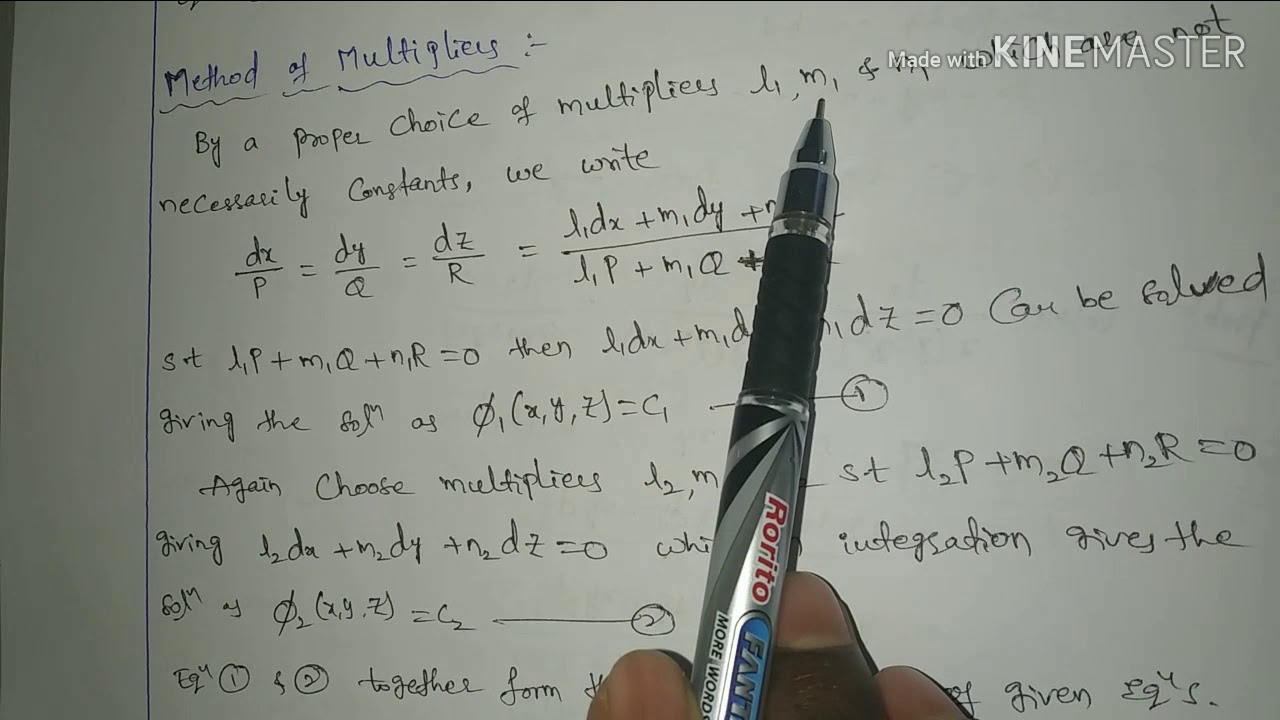 Method of Multipliers :-
Made with KINEMASTER
By a proper choice of multipliers l₁, m₁ & n₁ which are not
necessarily Constants, we write
dx/P = dy/Q = dz/R = l₁dx + m₁dy + n / l₁P + m₁Q +
st l₁P + m₁Q + n₁R = 0 then l₁dx + m₁d n₁dz = 0 Can be solved
giving the solⁿ as ϕ₁(x,y,z) = C₁ — ①
Again Choose multipliers l₂, m st l₂P + m₂Q + n₂R = 0
giving l₂dx + m₂dy + n₂dz = 0 whi integration gives the
solⁿ as ϕ₂(x,y,z) = C₂ — ②
Eqⁿ ① & ② together form of given Eqⁿs.
Rorito
FANT
MORE WORDS